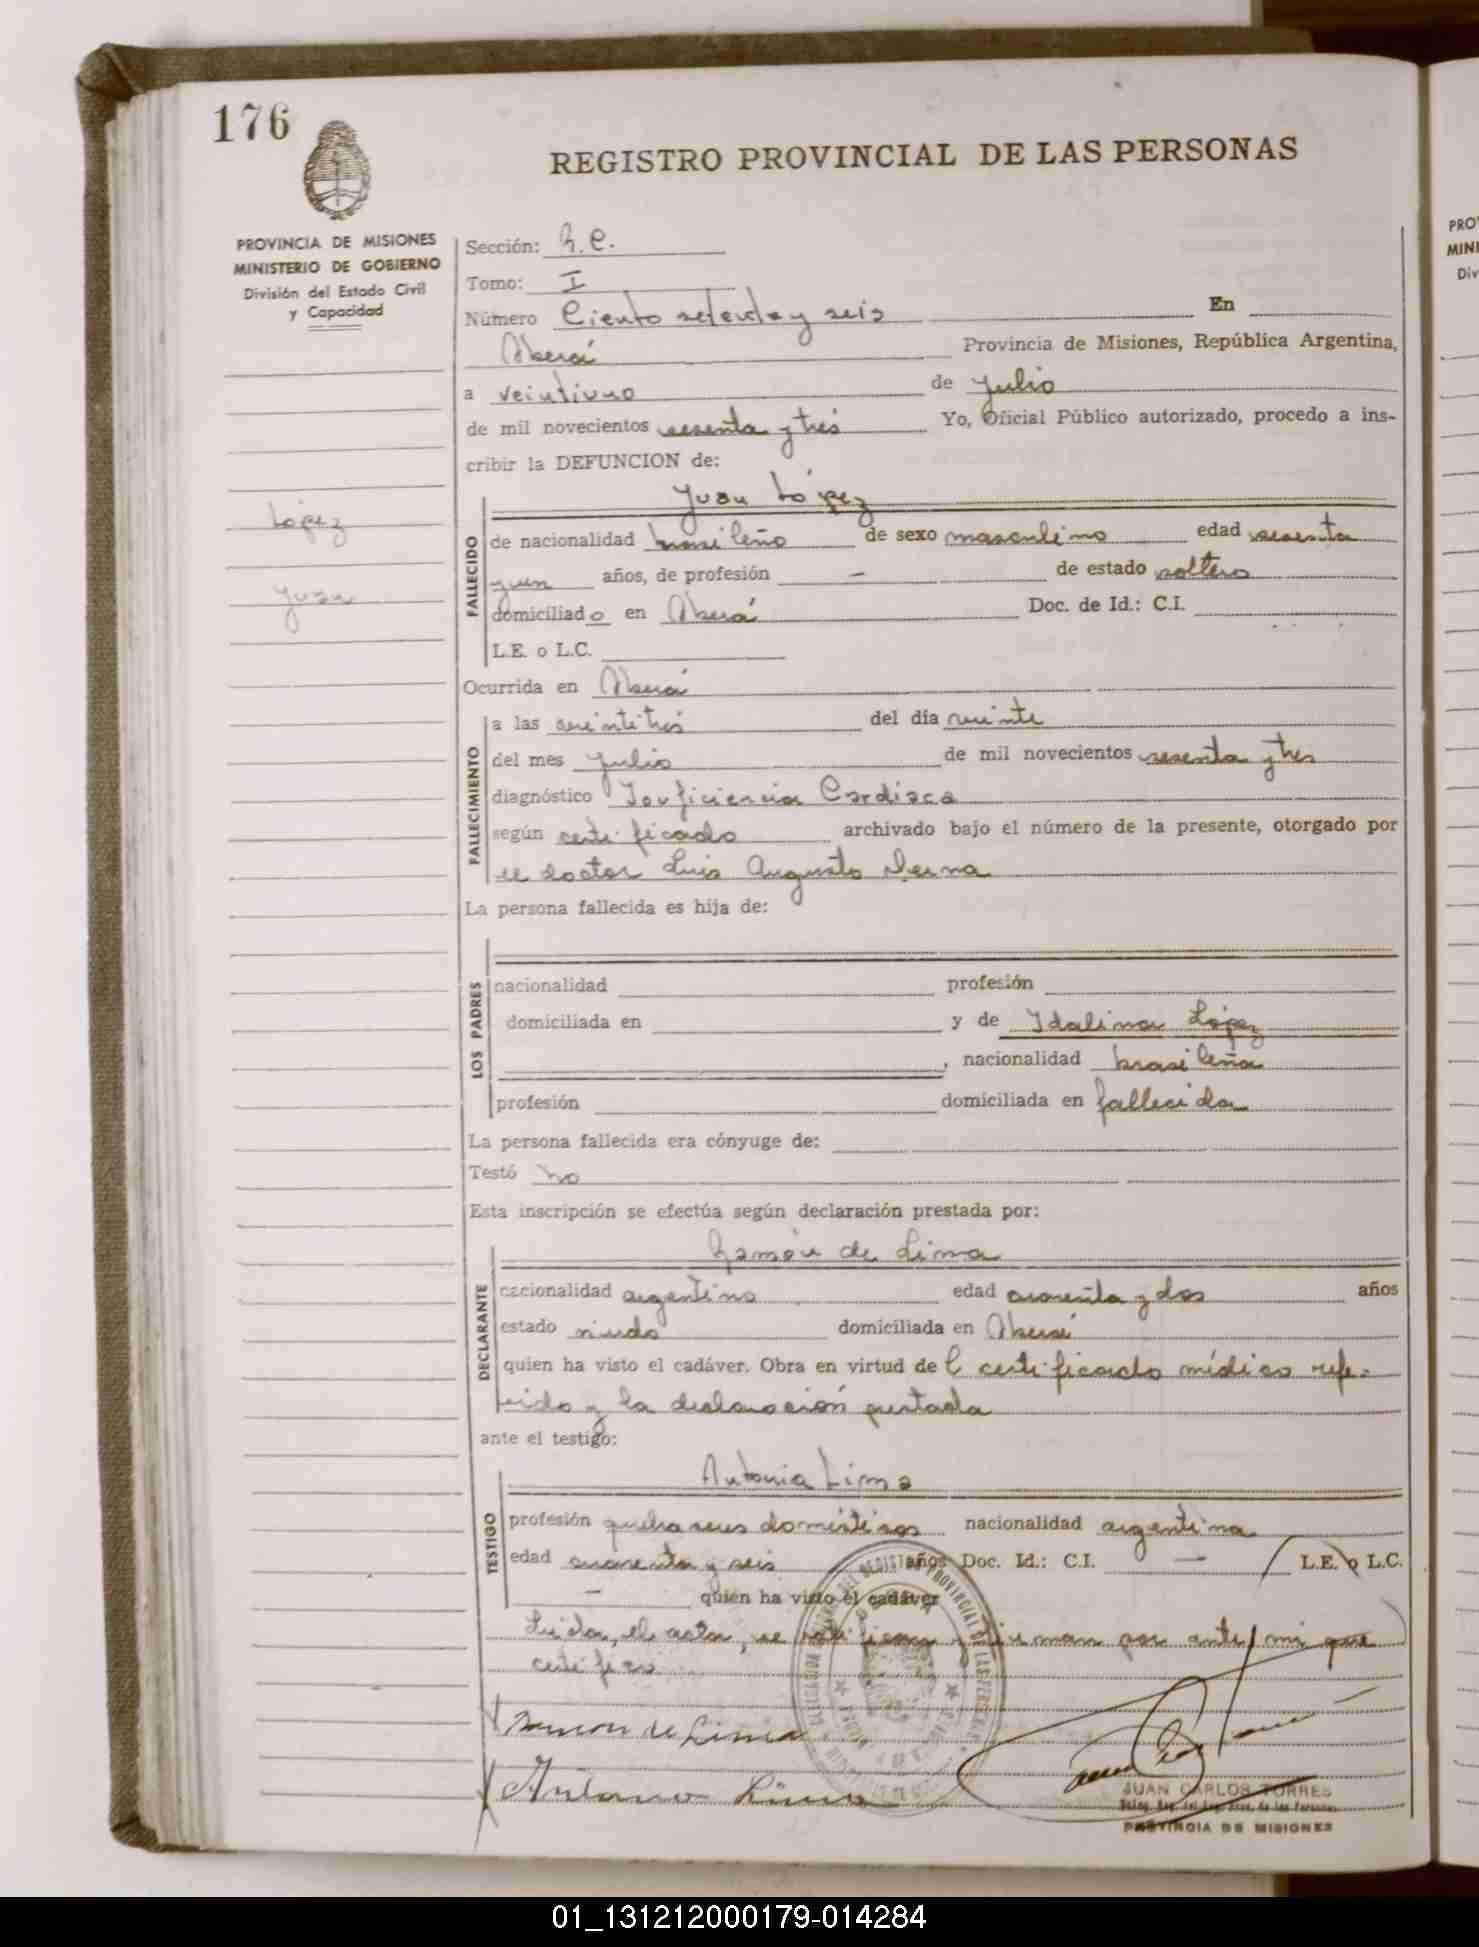 176
REGISTRO PROVINCIAL DE LAS PERSONAS
PROVINCIA DE MISIONES
MINISTERIO DE GOBIERNO
División del Estado Civil
y Capacidad
López
Juan
Sección: R.C.
Tomo: I
Número Ciento setenta y seis En
Oberá Provincia de Misiones, República Argentina,
a veintiuno de Julio
de mil novecientos sesenta y tres Yo, Oficial Público autorizado, procedo a ins-
cribir la DEFUNCION de:
Juan López
FALLECIDO
de nacionalidad brasileño de sexo masculino edad sesenta
y un años, de profesión — de estado soltero
domiciliado en Oberá Doc. de Id.: C.I.
L.E. o L.C.
Ocurrida en Oberá
FALLECIMIENTO
a las veintitrés del día veinte
del mes Julio de mil novecientos sesenta y tres
diagnóstico Insuficiencia Cardiaca
según certificado archivado bajo el número de la presente, otorgado por
el doctor Luis Augusto
La persona fallecida es hija de:
LOS PADRES
nacionalidad profesión
domiciliada en y de Idalina López
, nacionalidad brasileña
profesión domiciliada en fallecida
La persona fallecida era cónyuge de:
Testó no
Esta inscripción se efectúa según declaración prestada por:
Ramón de Lima
DECLARANTE
nacionalidad argentino edad cuarenta y dos años
estado viudo domiciliada en Oberá
quien ha visto el cadáver. Obra en virtud del certificado médico refe-
rido y la declaración prestada
ante el testigo:
Antonia Lima
TESTIGO
profesión quehaceres domésticos nacionalidad argentina
edad cuarenta y seis años Doc. Id.: C.I. — L.E. o L.C.
— quien ha visto el cadáver
Leida, el acta, se ratifican y firman por ante mi que
certifico
Ramon de Lima
Antonia Lima
JUAN CARLOS TORRES
PROVINCIA DE MISIONES
PRO
MINI
Div
01_131212000179-014284